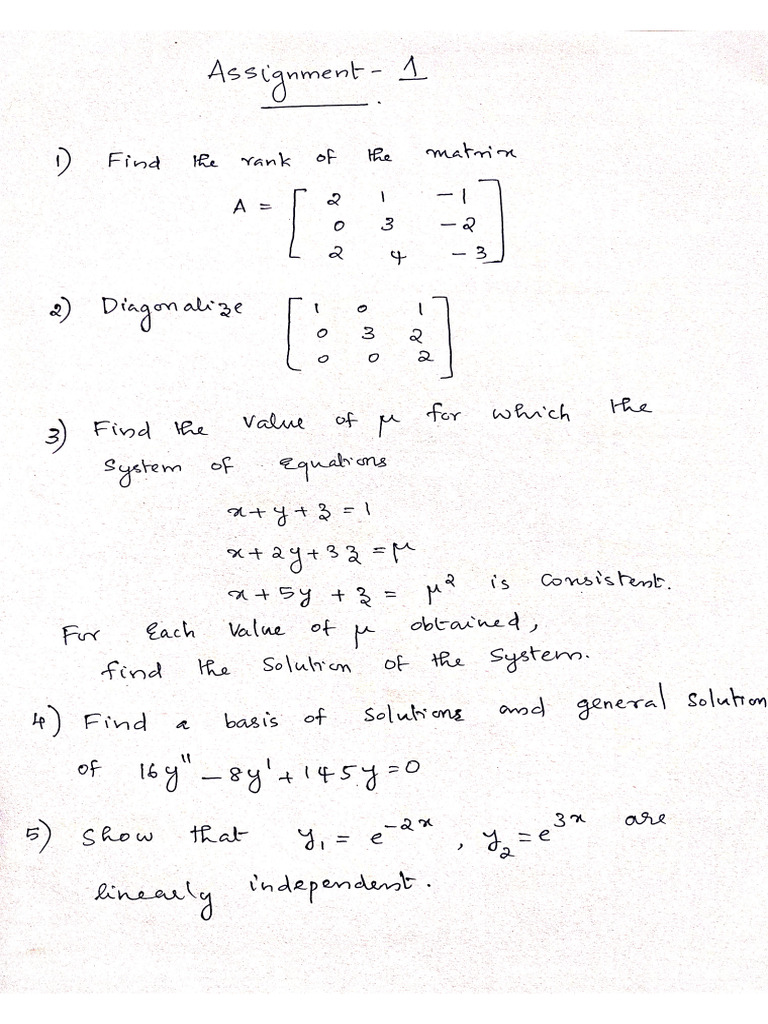 Assignment - 1
1) Find the rank of the matrix
A = [ 2 1 -1
0 3 -2
2 4 -3 ]
2) Diagonalize [ 1 0 1
0 3 2
0 0 2 ]
3) Find the value of μ for which the
system of equations
x + y + z = 1
x + 2y + 3z = μ
x + 5y + z = μ² is consistent.
For each value of μ obtained,
find the solution of the system.
4) Find a basis of solutions and general solution
of 16y'' - 8y' + 145y = 0
5) Show that y₁ = e^{-2x}, y₂ = e^{3x} are
linearly independent.